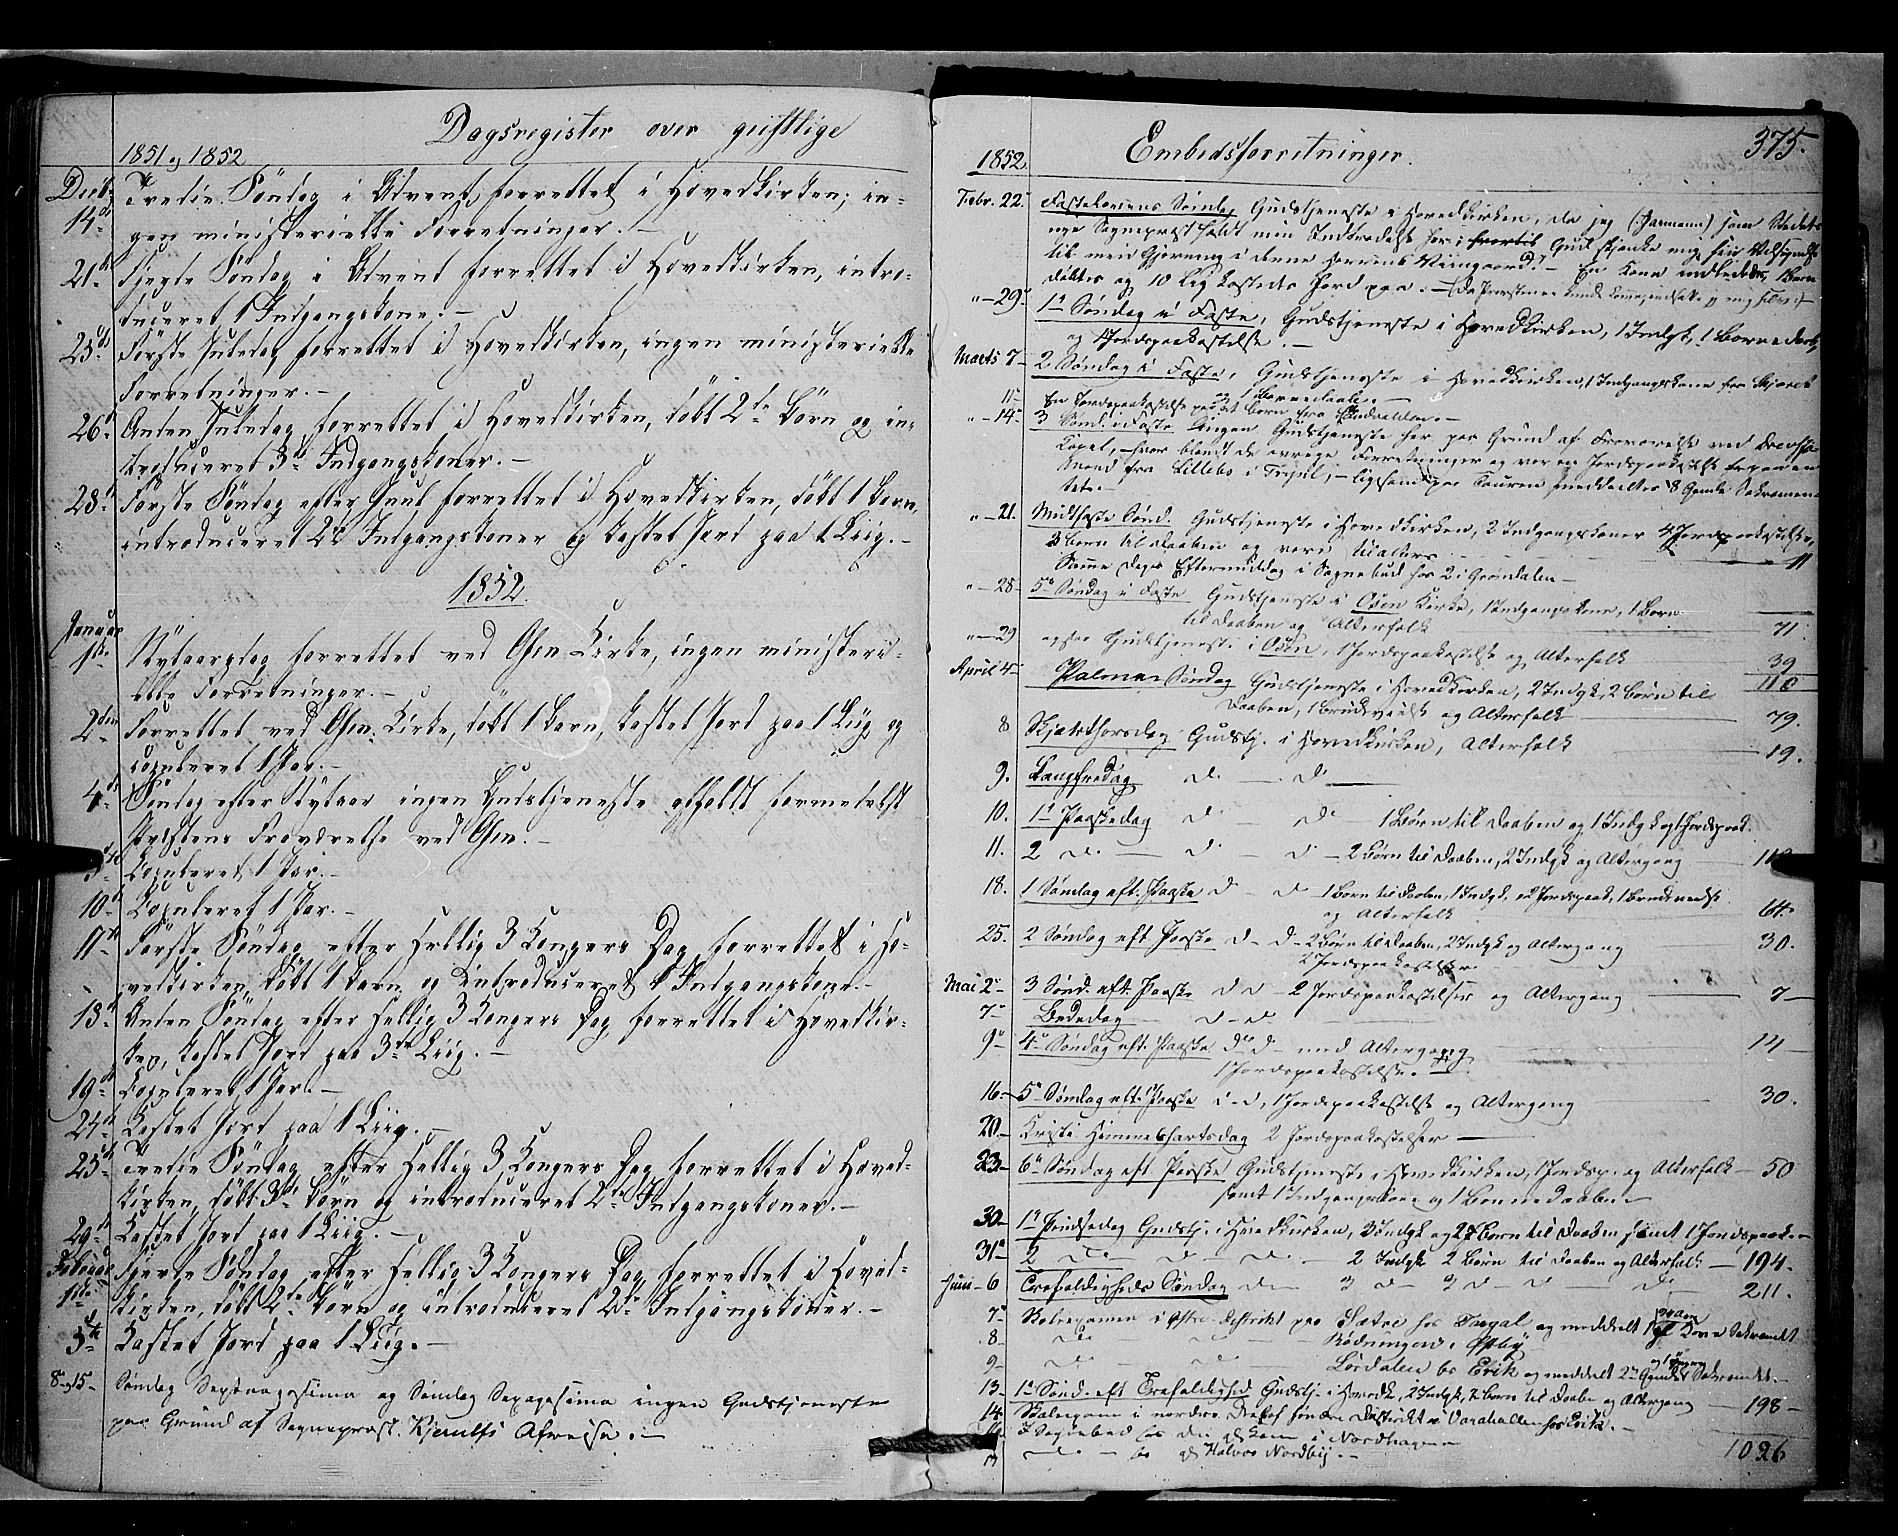 Dagsregister over geistlige
1851 og 1852
Decbr. Tredie Søndag i Advent forrettet i Hovedkirken; in-
14de gen ministerielle Forretninger. -
21de Fjerde Søndag i Advent forrettet i Hovedkirken, intro-
duceret 1 Indgangskone. -
25de Første Juledag forrettet i Hovedkirken, ingen ministerielle
Forretninger. -
26de Anden Juledag forrettet i Hovedkirken, døbt 2de Børn og in-
troduceret 3de Indgangskoner. -
28de Første Søndag efter Juul forrettet i Hovedkirken, døbt 1 Barn,
introduceret 2de Indgangskoner og kastet Jord paa 1 Liig. -
1852
Januar
1ste Nytaarsdag forrettet ved Osen Kirke, ingen ministeri-
elle Forretninger. -
2den Forrettet ved Osen Kirke, døbt 1 Barn, kastet Jord paa 1 Liig og
copuleret 1 Par. -
4de Søndag efter Nytaar ingen Gudstjeneste afholdt formedelst
Præstens Fraværelse ved Osen. -
5te Copuleret 1 Par. -
10de Copuleret 1 Par. -
11te Første Søndag efter Hellig 3 Kongers Dag forrettet i Ho-
vedkirken, døbt 1 Barn og introduceret 1 Indgangskone. -
18de Anden Søndag efter Hellig 3 Kongers Dag forrettet i Hovedkir-
ken, kastet Jord paa 3de Liig. -
19de Copuleret 1 Par. -
24de Kastet Jord paa 1 Liig. -
25de Tredie Søndag efter Hellig 3 Kongers Dag forrettet i Hoved-
kirken, døbt 3de Børn og introduceret 2de Indgangskoner. -
29de Kastet Jord paa 1 Liig. -
Februar Fjerde Søndag efter Hellig 3 Kongers Dag forrettet i Hoved-
1ste kirken, døbt 2de Børn og introduceret 2de Indgangskoner. -
5te Kastet Jord paa 1 Liig. -
8de og 15- Søndag Septuagesima og Søndag Sexagesima ingen Gudstjeneste
paa Grund af Sognepræst Kjerulfs Afreise. -
Embedsforretninger.
375.
1852
Febr. 22. Fastelavens Søndag Gudstjeneste i Hovedkirken, da jeg (Jarmann) som Stedets
nye Sognepræst holdt min Indtrædelse her; Gud skjænke mig sin Velsignelse
til min Gjerning i denne Herrens Viingaard! - En Kone indlededes, 1 Barn
døbtes og 10 Lig kastedes Jord paa. -
" - 29 1ste Søndag i Faste, Gudstjeneste i Hovedkirken, 1 Indgk, 1 Barnedaab,
og 1 Jordpaakastelse. -
Marts 7 - 2 Søndag i Faste, Gudstjeneste i Hovedkirken, 1 Indgangskone fra
og 1 Barnedaab. -
11 En Jordpaakastelse paa et Barn fra
" - 14 3 Sønd. i Faste ingen Gudstjeneste her paa Grund af Fraværelse ved
Capel, - hvor blandt de øvrige Forretninger og var en Jordpaakastelse
Mand fra Lillebo i Trysil, - ligesom paa Touren meddeeltes 8 Gamle Sakramen-
tet. -
" - 21. Midfaste Sønd. Gudstjeneste i Hovedkirken, 2 Indgangskoner 4 Jordpaakastelser,
3 Børn til Daaben og vare til Alters 11
Samme Dags Eftermiddag i Sognebud hos 2 i Grøndalen -
" - 28 - 5te Søndag i Faste Gudstjeneste i Osen Kirke, 1 Indgangskone, 1 Barn
til Daaben og Alterfolk 71
" - 29 ogsaa Gudstjeneste i Osen, 1 Jordpaakastelse og Alterfolk 39
110
April 4 - Palme Søndag Gudstjeneste i Hovedkirken, 2 Indgk, 2 Børn til
Daaben, 1 Brudevielse og Alterfolk 79.
8 Skjærthorsdag Gudstj. i Hovedkirken, Alterfolk 19.
9. Langfredag do - do
10. 1ste Paaskedag do - do - 1 Børn til Daaben og 1 Indgk og 1 Jordpaak.
11. 2 do - do - do - 2 Børn til Daaben, 2 Indgk og Altergang
18. 1 Søndag eft. Paaske do - do 1 Barn til Daaben, 1 Indgk, 2 Jordpaak, 1 Brudevielse
og Alterfolk 64.
25. 2 Søndag eft Paaske do - do - 2 Børn til Daaben, 2 Indgk og Altergang 30.
2 Jordpaakastelser.
Mai 2 - 3 Sønd. eft. Paaske do do - 2 Jordpaakastelser og Altergang 7 -
7 - Bededag - do - do
9 - 4 Søndag eft. Paaske do do - med Altergang
1 Jordpaakastelse.
16 - 5 Søndag eft. Paaske do - do, 1 Jordpaakastelse og Altergang 30.
20. Kristi Himmelfartsdag 2 Jordpaakastelser -
23 - 6 Søndag eft Paaske Gudstjeneste i Hovedkirken, 1 Jordsp. og Alterfolk - 50
samt 1 Indgangskone og 1 Barnedaab. -
30 - 1ste Pindsedag Gudstj. i Hovedkirken, 3 Indgk og 2 Børn til Daaben samt 1 Jordspaak. -
31 2 do do - do - 2 Indgk 2 Børn til Daaben og Alterfolk - 194.
Juni - 6 Trefoldigheds Søndag do 3 do - 3 do do do 211.
7 Skoleexamen i Østre Distrikt paa Sætre hos og meddeelt 1 gammel Kone Sakramentet
8 do do Rødningen i Østby
9 - do do Lørdalen hos Erik og meddeelt 2 Gamle Sakramentet. -
13 - 1ste Sønd. eft Trefoldighed Gudstj. i Hovedk, 2 Indgk, 2 Børn til Daabe og Altergang - 198 -
14. Skoleexamen i nordre Deel af søndre Distrikt i
16 I Sognebud hos en Kone i Nordhagen
17 do - hos Halvor Nordby. -
1026